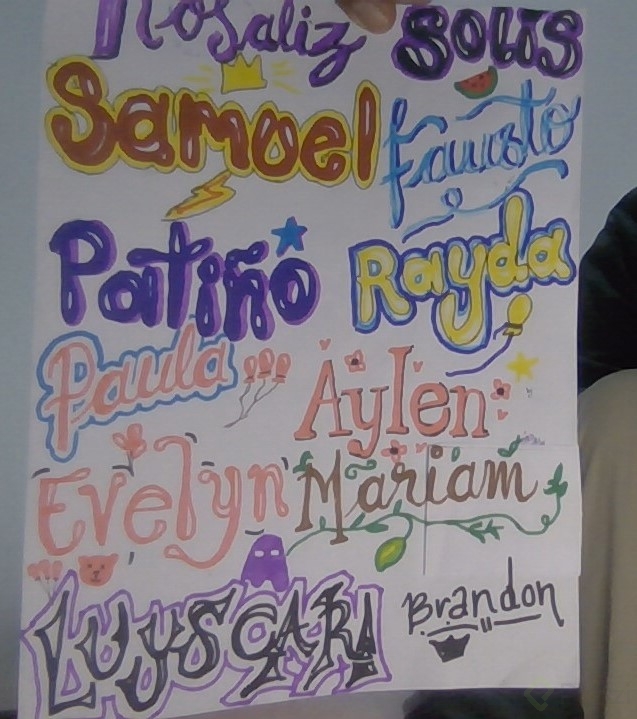 Rosaliz Solis
Samuel Fausto
Patiño Rayda
Paula Aylen
Evelyn Mariam
LUYSCARI Brandon